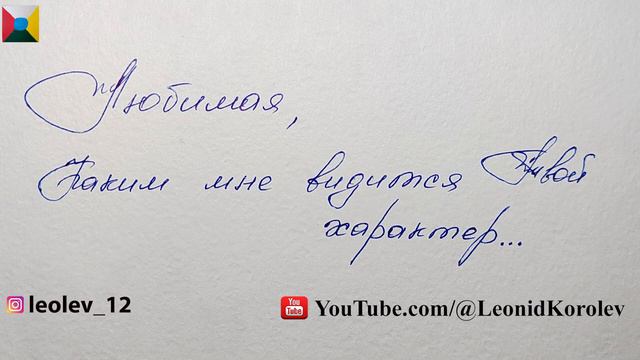 Любимая,
Таким мне видится Твой
характер...
leolev_12
You Tube YouTube.com/@LeonidKorolev